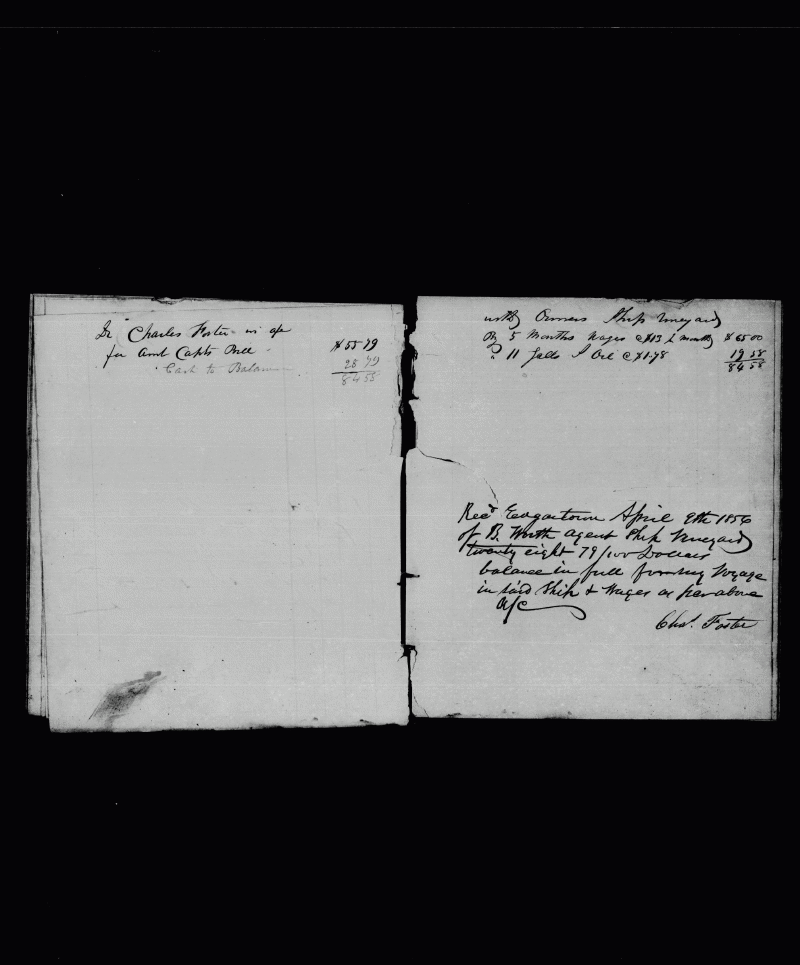 Dr Charles Foster in a/c
for Amt Capts Bill $55 79
Cash to Balance 28 79
84 58
with Owners Ship Vineyard
By 5 Months Wages @ $13 p month $65 00
" 11 Galls Oil @ $1.78 19 58
84 58
Recd Edgartown April 9th 1856
of B. Worth agent Ship Vineyard
twenty eight 79/100 Dollars
balance in full for my Voyage
in said Ship & Wages as per above
A/C
Chas. Foster